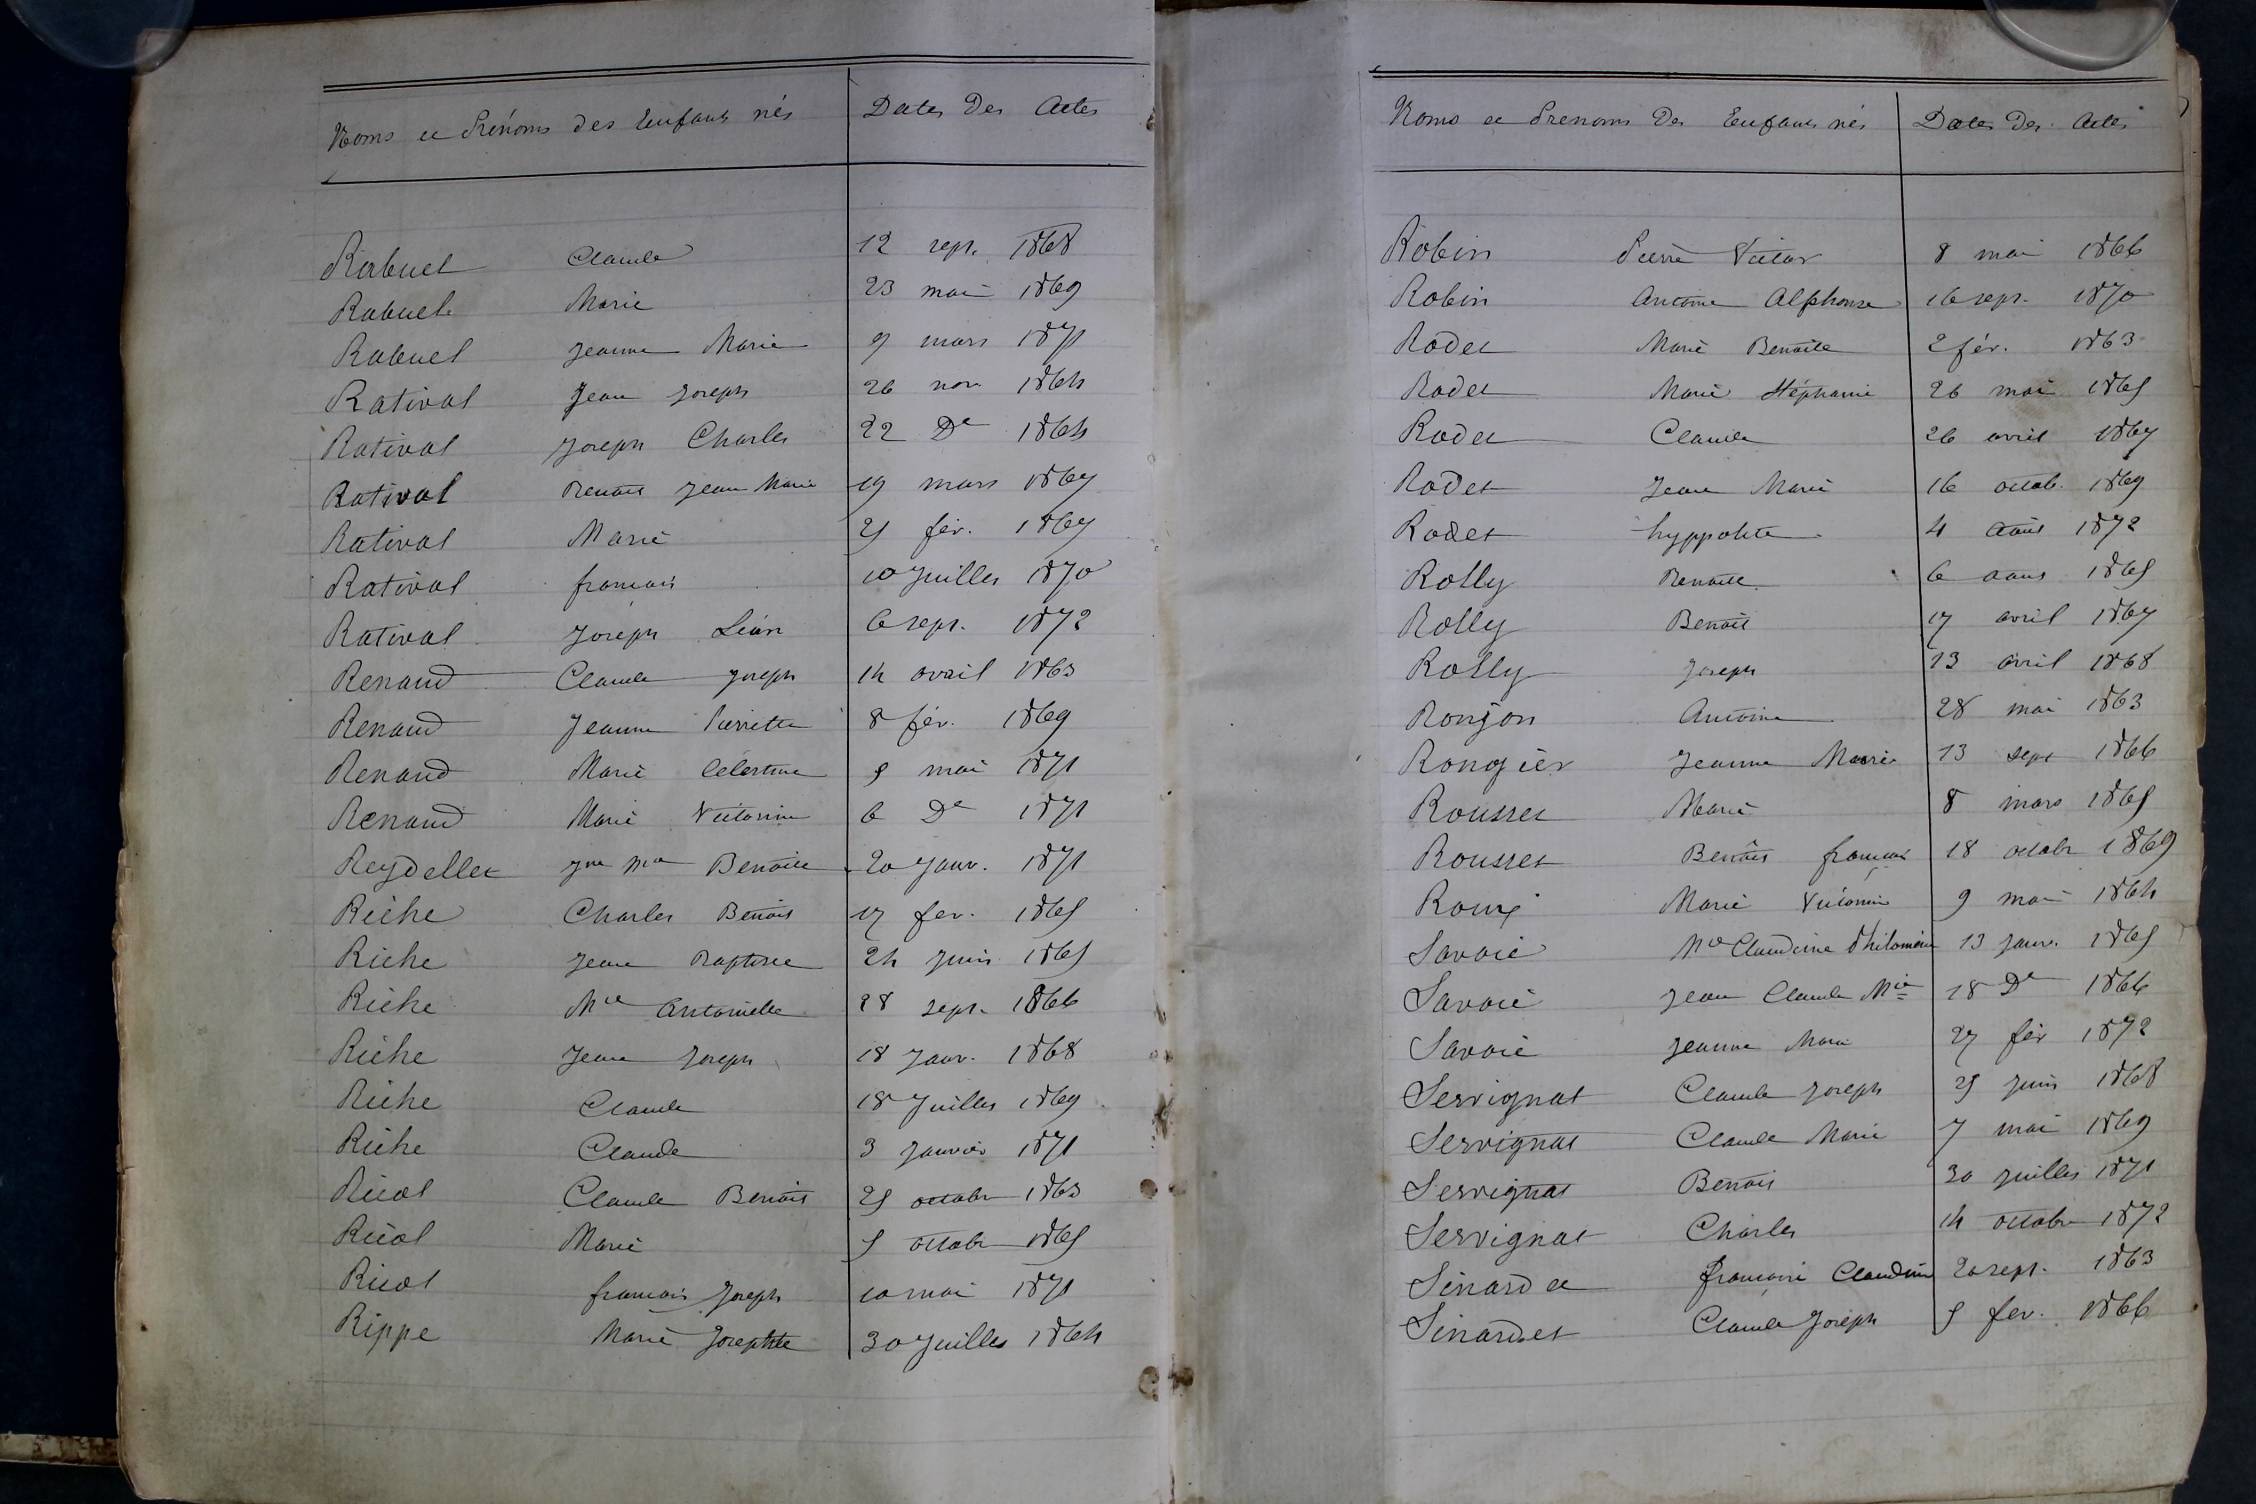 Noms et Prénoms des Enfants nés Dates Des Actes
Rabuel Claude 12 sept. 1868
Rabuel Marie 23 mai 1869
Rabuel Jeanne Marie 9 mars 1871
Rativat Jean Joseph 26 nov 1864
Rativat Joseph Charles 22 De 1864
Rativat Benoit Jean Marie 19 mars 1867
Rativat Marie 25 fév. 1867
Rativat francois 10 Juillet 1870
Rativat Joseph Léon 6 sept. 1872
Renaud Claude Joseph 14 avril 1863
Renaud Jeanne Pierrette 8 fév. 1869
Renaud Marie Célestine 5 mai 1871
Renaud Marie Victorine 6 De 1871
Reydellet Jne Mie Benoite 20 Janv. 1871
Riche Charles Benoit 17 fev. 1865
Riche Jean Baptiste 24 Juin 1865
Riche Mie Antoinette 28 sept. 1866
Riche Jean Joseph 18 Janv. 1868
Riche Claude 18 Juillet 1869
Riche Claude 3 Janvier 1871
Ricol Claude Benoit 25 octobr 1863
Ricol Marie 5 octobr 1865
Ricol francois Joseph 10 mai 1871
Rippe Marie Josephte 30 Juillet 1864
Noms et Prenoms Des Enfants nés Dates Des Actes
Robin Pierre Victor 8 mai 1866
Robin Antoine Alphonse 16 sept. 1870
Rodet Marie Benoite 2 fév. 1863
Rodet Marie Stéphanie 26 mai 1865
Rodet Claude 26 avril 1867
Rodet Jean Marie 16 octob. 1869
Rodet hyppolite 4 Août 1872
Rolly Benoite 6 aout 1865
Rolly Benoit 17 avril 1867
Rolly Joseph 13 avril 1868
Ronjon Antoine 28 mai 1863
Rongier Jeanne Marie 13 sept 1866
Rousset Marie 8 mars 1865
Rousset Benoit françois 18 octobr 1869
Roux Marie Victorine 9 mai 1864
Savoie Mie Claudine Philomène 13 janv. 1865
Savoie Jean Claude Mie 18 De 1866
Savoie Jeanne Marie 27 fév 1872
Servignat Claude Joseph 25 juin 1868
Servignat Claude Marie 7 mai 1869
Servignat Benoit 30 juillet 1871
Servignat Charles 14 octobr 1872
Sinardet françoise Claudine 20 sept. 1863
Sinardet Claude Joseph 5 fev. 1866